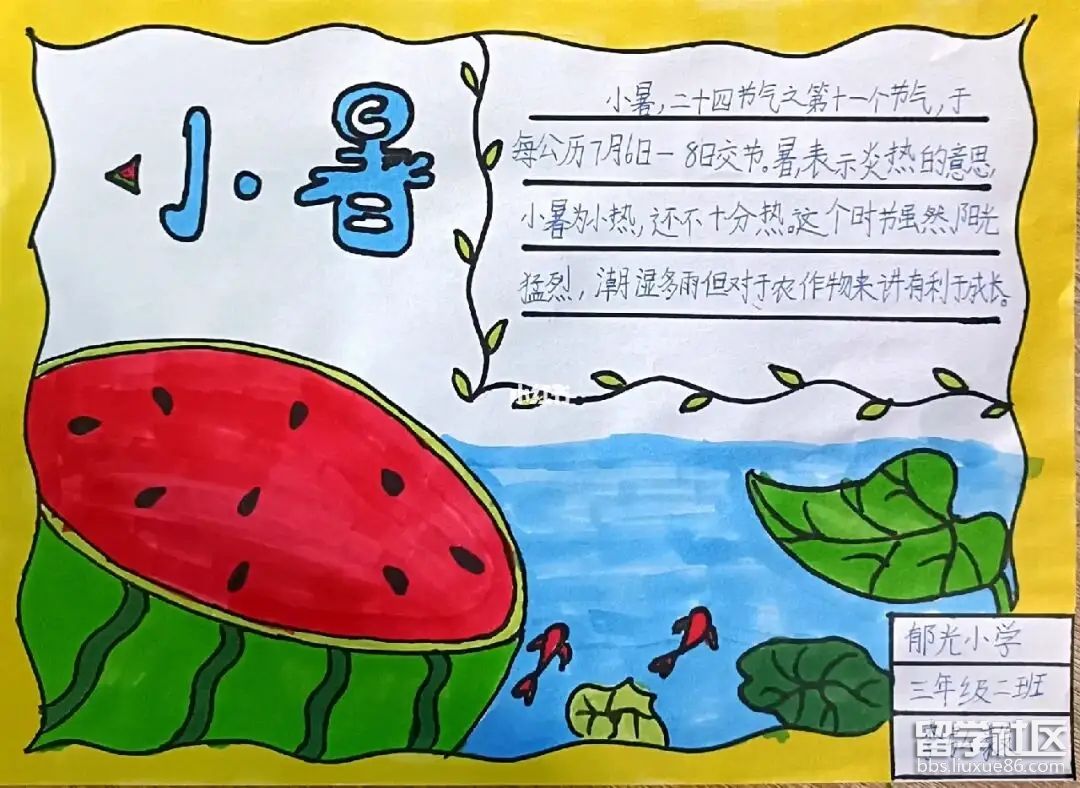 小暑
小暑，二十四节气之第十一个节气，于
每公历7月6日-8日交节。暑，表示炎热的意思，
小暑为小热，还不十分热。这个时节虽然阳光
猛烈，潮湿多雨但对于农作物来讲有利于成长。
小红书
郁光小学
三年级二班
留学社区
bbs.liuxue86.com